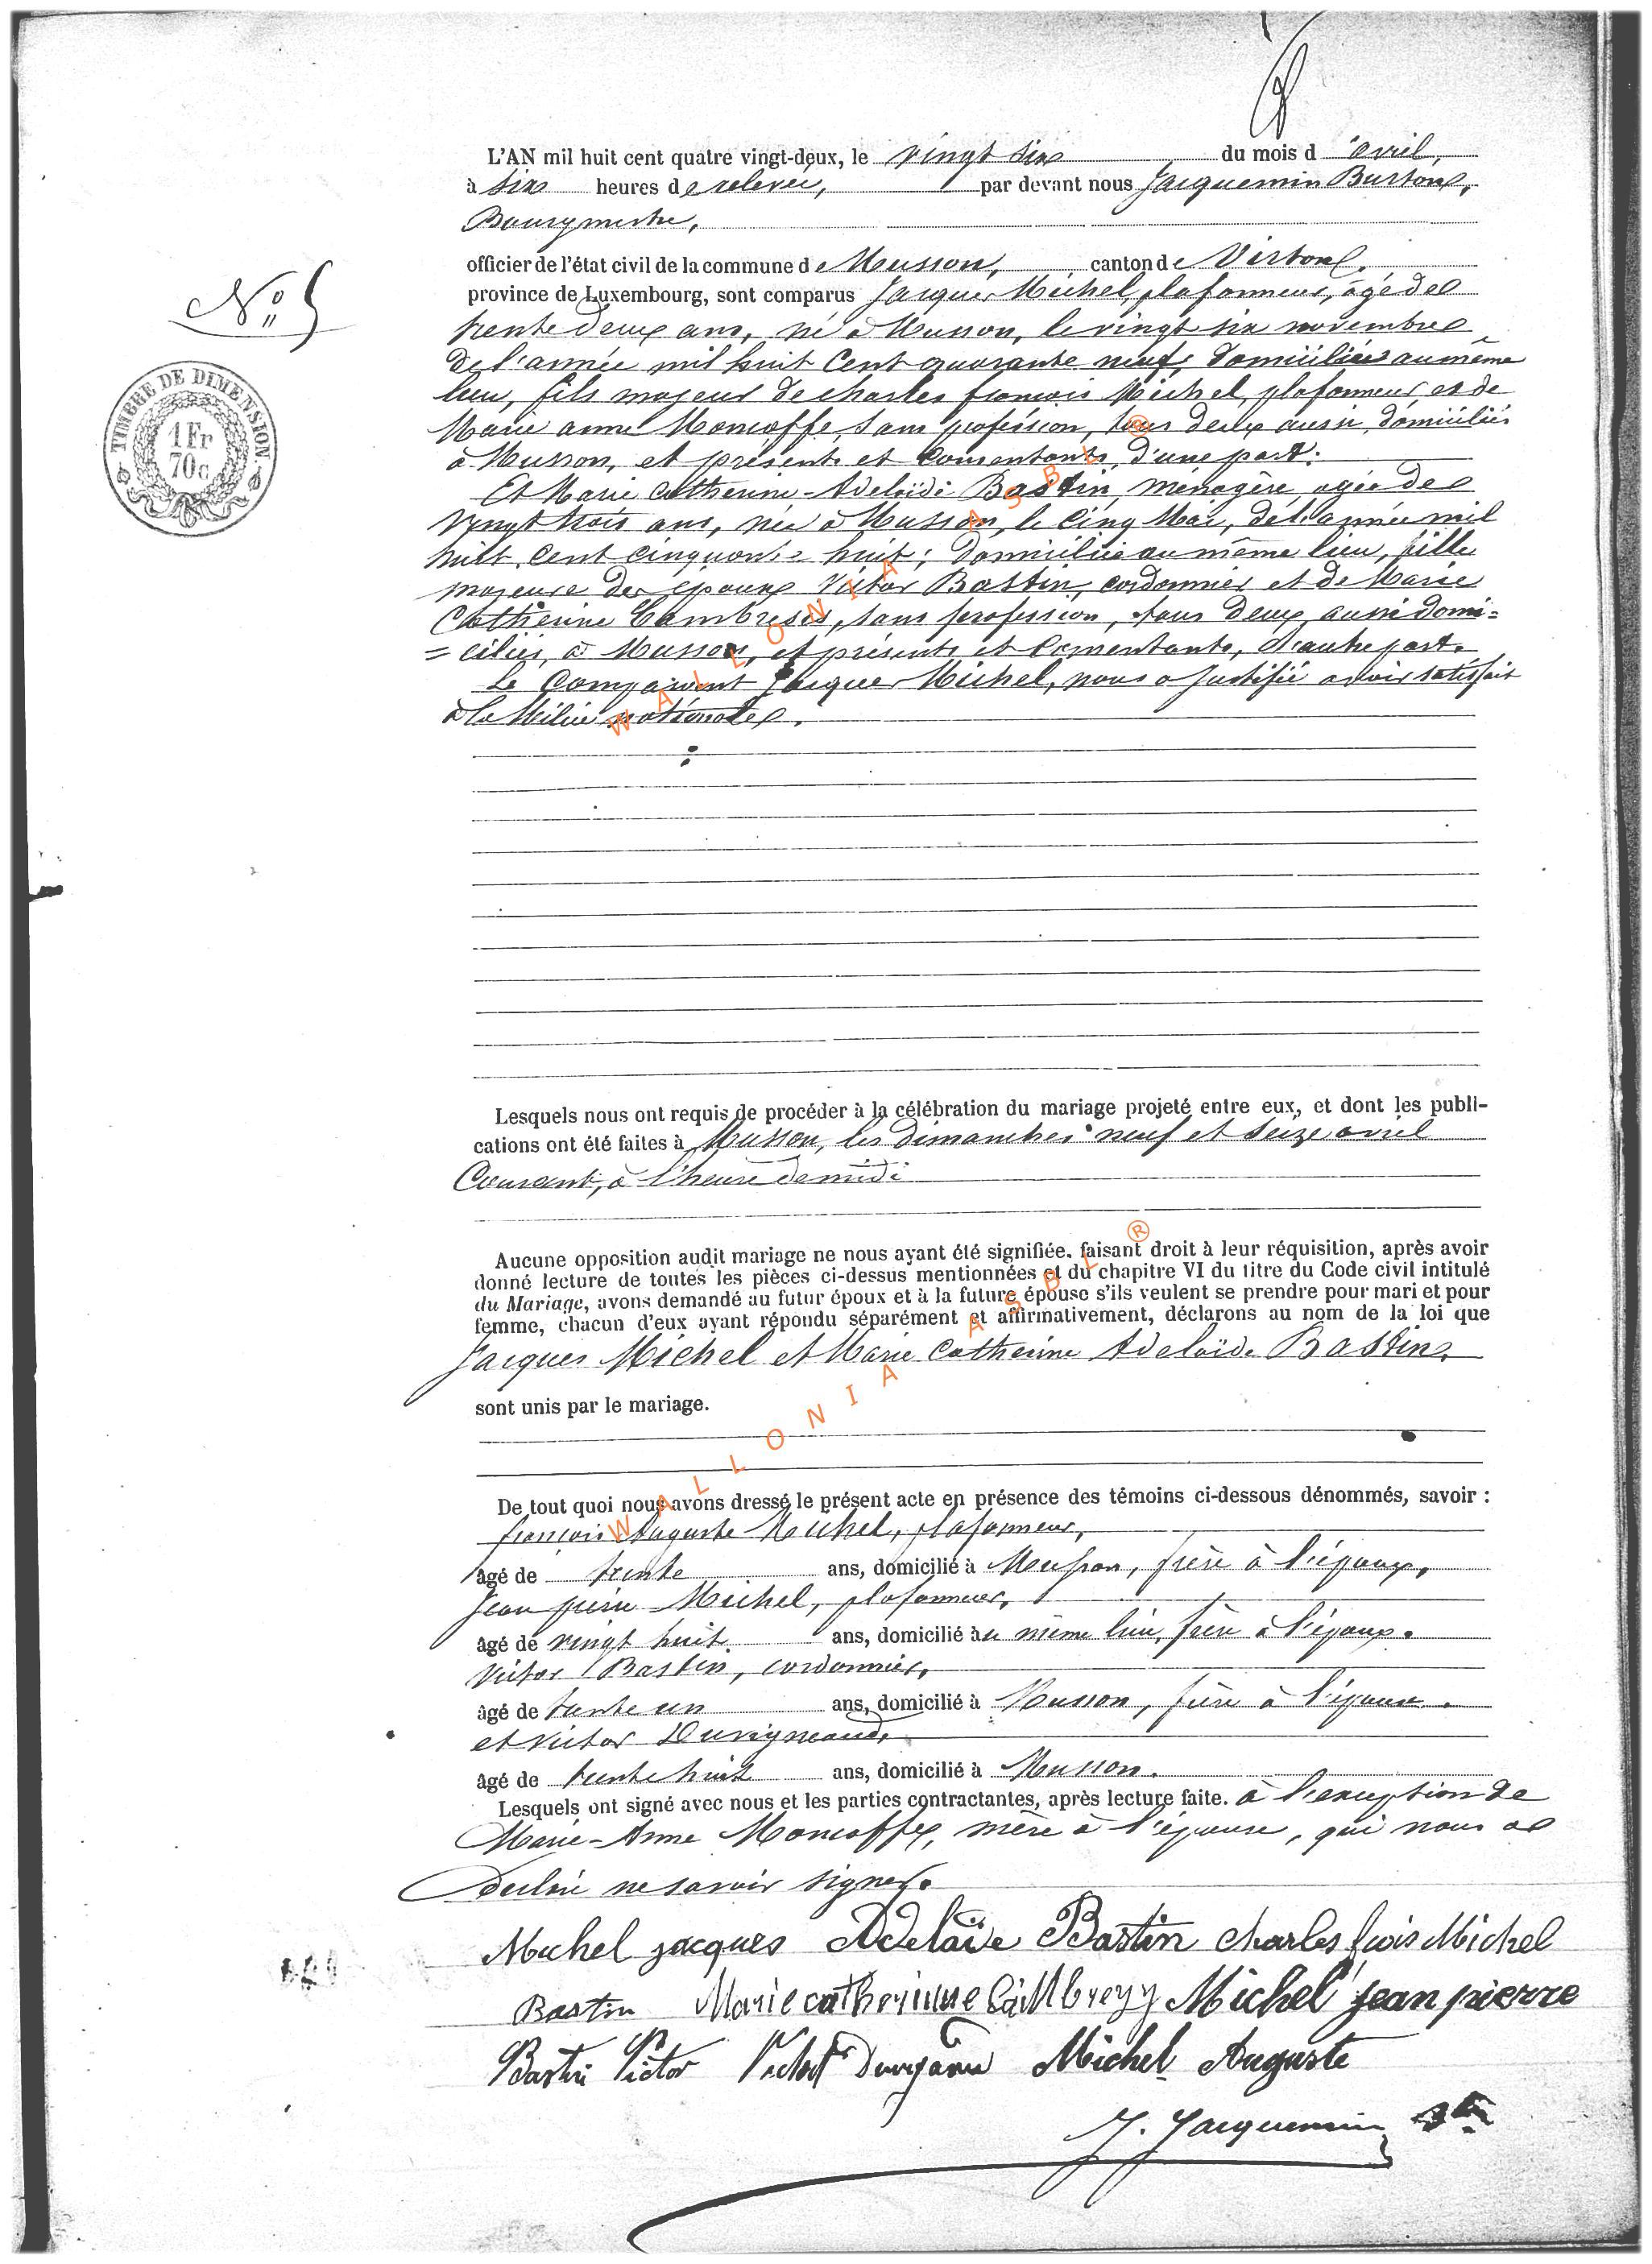 L'AN mil huit cent quatre vingt-deux, le vingt six du mois d'avril,
à six heures de relevée, par devant nous Jacquemin Burton,
Bourgmestre,
officier de l'état civil de la commune de Musson, canton de Virton,
province de Luxembourg, sont comparus Jacques Michel, plafonneur, âgé de
trente deux ans, né à Musson, le vingt six novembre
de l'année mil huit cent quarante neuf, domicilié au même
lieu, fils majeur de charles françois Michel, plafonneur, et de
Marie anne Moncoffe, sans profession, tous deux aussi domiciliés
à Musson, et présents et consentants, d'une part.
Et Marie Catherine-Adelaïde Bastin, ménagère, agée de
vingt trois ans, née à Musson, le cinq Mai, de l'année mil
huit cent cinquante huit; domiciliée au même lieu, fille
majeure des époux Victor Bastin, cordonnier et de Marie
Catherine Cambresis, sans profession, tous deux aussi domi=
=ciliés, à Musson, et présents et consentants, d'autre part.
Le Comparant Jacques Michel, nous a justifié avoir satisfait
à la Milice nationale.
No 5
TIMBRE DE DIMENSION.
1 Fr
70c
Lesquels nous ont requis de procéder à la célébration du mariage projeté entre eux, et dont les publi-
cations ont été faites à Musson, les dimanches neuf et seize avril
Courant, à l'heure de midi
Aucune opposition audit mariage ne nous ayant été signifiée. faisant droit à leur réquisition, après avoir
donné lecture de toutes les pièces ci-dessus mentionnées et du chapitre VI du titre du Code civil intitulé
du Mariage, avons demandé au futur époux et à la future épouse s'ils veulent se prendre pour mari et pour
femme, chacun d'eux ayant répondu séparément et affirmativement, déclarons au nom de la loi que
Jacques Michel et Marie Catherine Adelaïde Bastin,
sont unis par le mariage.
De tout quoi nous avons dressé le présent acte en présence des témoins ci-dessous dénommés, savoir :
françois Auguste Michel, plafonneur,
âgé de trente ans, domicilié à Musson, frère à l'époux,
Jean pierre Michel, plafonneur,
âgé de vingt huit ans, domicilié au même lieu, frère à l'époux.
Victor Bastin, cordonnier,
âgé de trente un ans, domicilié à Musson, frère à l'épouse.
et Victor Duvigneaud,
âgé de trente huit ans, domicilié à Musson.
Lesquels ont signé avec nous et les parties contractantes, après lecture faite. à l'exception de
Marie-Anne Moncoffe, mère à l'épouse, qui nous a
déclaré ne savoir signer.
Michel jacques Adelaïde Bastin charles fcois Michel
Bastin Marie catherinne Cambrezy Michel jean pierre
Bastin Victor Victor Michel Auguste
J. Jacquemin
WALLONIA ASBL ®
WALLONIA ASBL ®